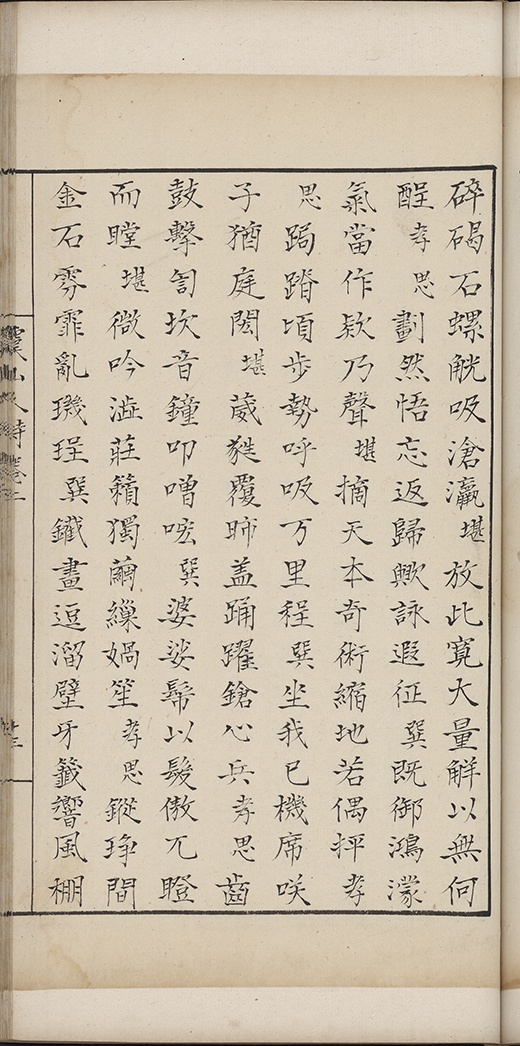 碎碣石螺觥吸滄瀛堪放此寬大量觧以無何
酲孝思劃然悟忘返歸歟詠遐征巽既御鴻濛
氣當作欵乃聲堪摘天本奇術縮地若偶抨孝
思跼蹐頃步勢呼吸万里程巽坐我已機席咲
子猶庭閎堪葳蕤覆昁盖踊躍鎗心兵孝思齒
鼓擊訇坎音鐘叩噌吰巽婆娑鬀以髮傲兀瞪
而瞠堪微吟澁莊籟獨繭繅媧笙孝思鏦琤間
金石雰霏亂璣珵巽鐵畫逗溜壁牙籤響風棚
人詩